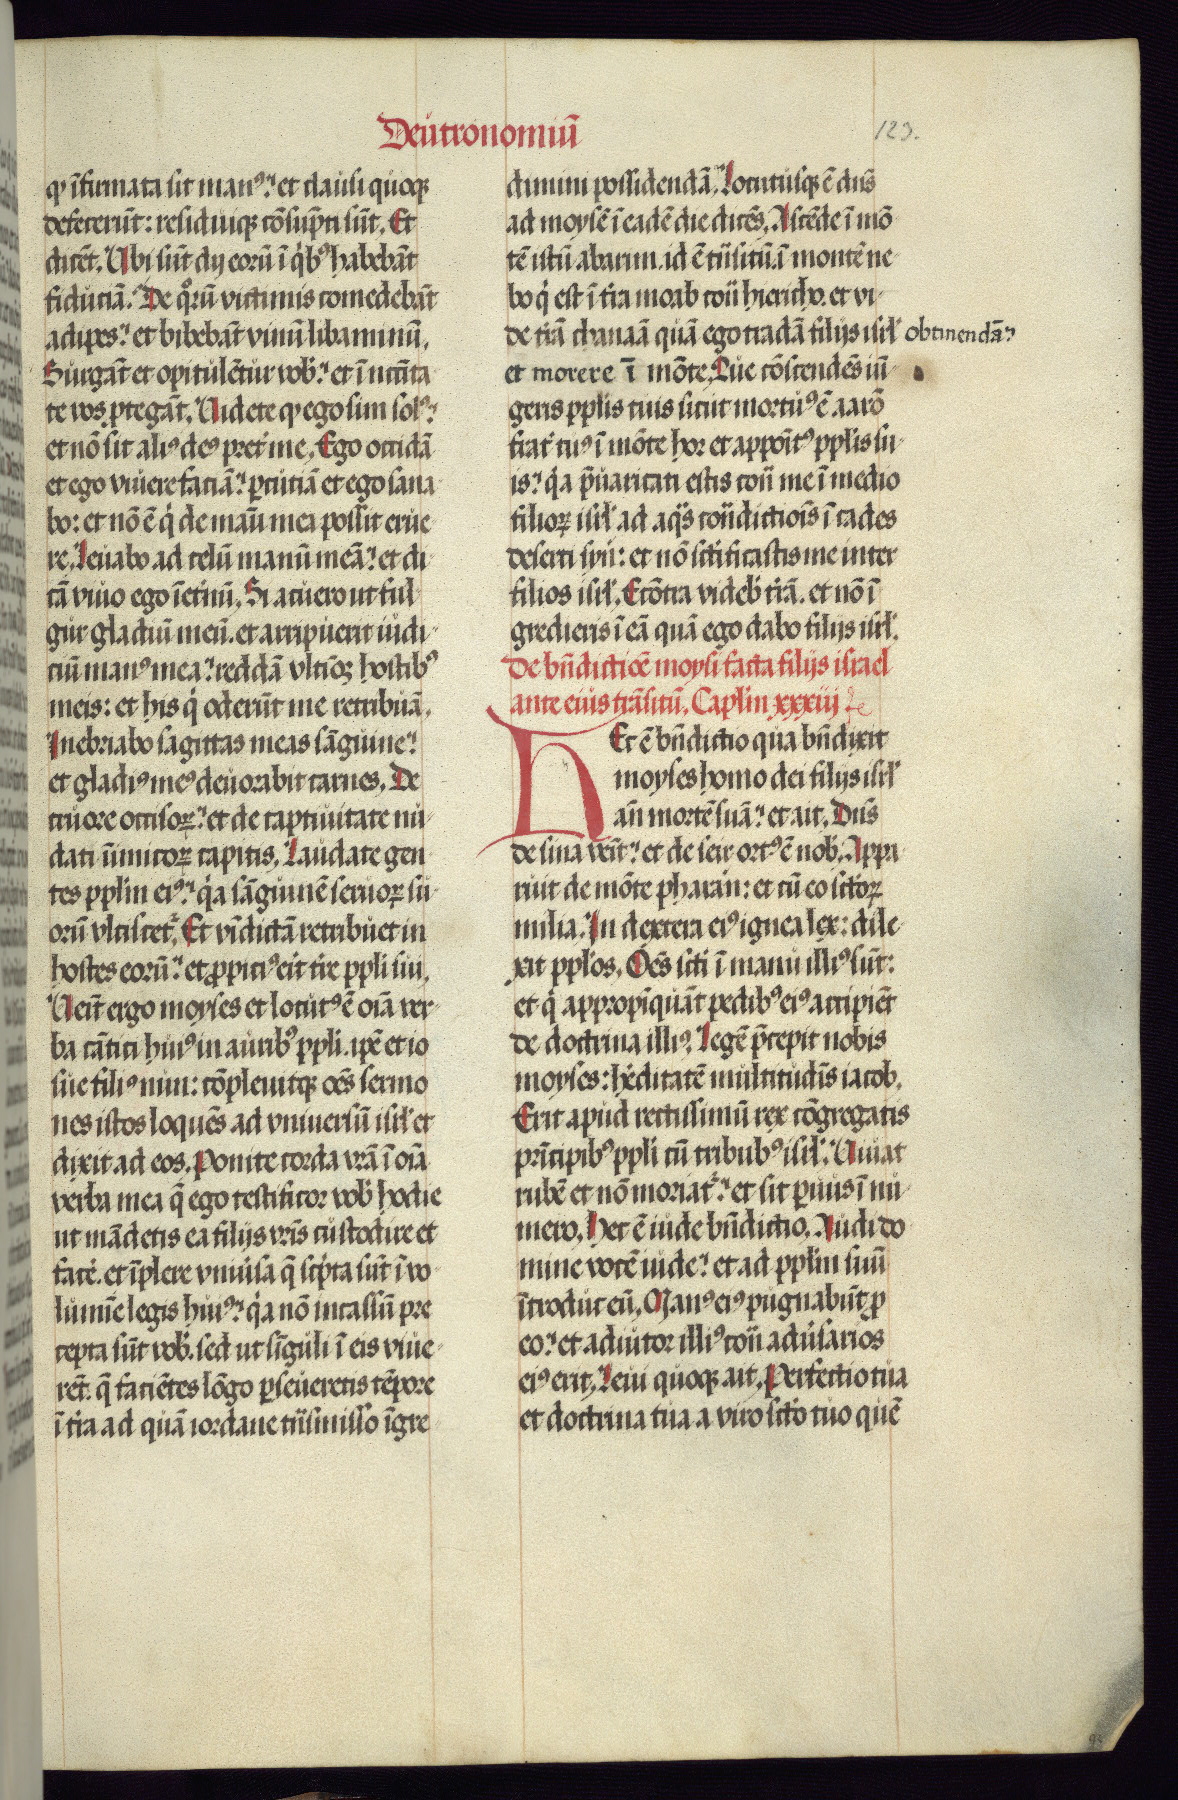 Deutronomiū
123.
qꝙ īfirmata sit manꝰ: et clausi quoqꝫ
defecerūt: residuiqꝫ cōsūpti sūt. Et
dicēt. Ubi sūt dij eorū ī qͥbꝰ habebāt
fiduciā: De qͦrū victimis comedebāt
adipes: et bibebāt vinū libaminū.
Surgāt et opitulētur vob̄: et ī nccīta
te vos ꝓtegāt. Uidete ꝙ ego sim solꝰ:
et nō sit aliꝰ deꝰ pret̄ me. Ego occidā
et ego viuere faciā: ꝑcutiā et ego sana
bo: et nō ē qͥ de manu mea possit erue
re. Leuabo ad celū manū meā: et di
cā viuo ego īet̄nū. Si acuero ut ful
gur gladiū meū. et arripuerit iudi
ciū manꝰ mea: reddā vltōeꝫ hostibꝰ
meis: et his qͥ oderūt me retribuā.
Inebriabo sagittas meas sāguine:
et gladiꝰ meꝰ deuorabit carnes. De
cruore occisoꝝ: et de captiuitate nu
dati īimicoꝝ capitis. Laudate gen
tes pplm eiꝰ: qͥa sāguinē seruoꝝ su
orū vlciscet̉. Et vīdictā retribuet in
hostes eorū: et ꝓpiciꝰ erit t̄re ppli sui.
Uenit ergo moyses et locutꝰ ē oīa ver
ba cātici huiꝰ in auribꝰ ppli. ip̄e et io
sue filiꝰ nun: cōpleuitqꝫ oēs sermo
nes istos loquēs ad vniuersū isrl̄ et
dixit ad eos. Ponite corda vrā ī oīa
verba mea q̄ ego testificor vob̄ hodie
ut mādetis ea filijs vrīs custodire et
facē. et īplere vniūsa q̄ scͥpta sūt ī vo
lumīe legis huiꝰ: qͥa nō incassū pre
cepta sūt vob̄. sed ut sīguli ī eis viue
rēt. q̄ faciētes lōgo ꝑseueretis tēpore
ī t̄ra ad quā iordane trāsmisso īgre
dimini possidendā. Locutusqꝫ ē dn̄s
ad moysē ī eadē die dicēs. Ascēde ī mō
tē istū abarim. id ē trāsitū. ī montē ne
bo qͥ est ī t̄ra moab cōtra hiericho. et vi
de t̄rā chanaā quā ego tradā filijs isrl̄ obtinendā:
et morere ī mōte. Que cōscendēs iū
geris pplis tuis sicut mortuꝰ ē aarō
frat̄ tuꝰ ī mōte hor et appōitꝰ pplis su
is: qͥa p̄uaricati estis cōtra me ī medio
filioꝝ isrl̄ ad aqͣs cōtradictiōis ī cades
deserti syn: et nō scīficastis me inter
filios isrl̄. Ecōtra videb̄ t̄rā. et nō ī
gredieris ī eā quā ego dabo filijs isrl̄.
De bn̄dictiōe moysi facta filijs israel
ante eius trāsitū. Caplm xxxiij
Hec ē bn̄dictio qua bn̄dixit
moyses homo dei filijs isrl̄
an̄ mortē suā: et ait. Dn̄s
de sina venīt: et de seir ortꝰ ē nob̄. Appa
ruit de mōte pharan: et cū eo sctōꝝ
milia. In dextera eiꝰ ignea lex: dile
xit pplos. Oēs scti ī manu illiꝰ sūt:
et qͥ appropīquāt pedibꝰ eiꝰ accipiēt
de doctrina illiꝰ. Legē p̄cepit nobis
moyses: hēditatē multitudīs iacob.
Erit apud rectissimū rex cōgregatis
prīcipibꝰ ppli cū tribubꝰ isrl̄. Uiuat
rubē et nō moriat̉: et sit ꝑuus ī nu
mero. Hec ē iude bn̄dictio. Audi do
mine vocē iude: et ad pplm suū
ītroduc eū. Manꝰ eiꝰ pugnabūt ꝓ
eo: et adiutor illiꝰ cōtra aduersarios
eiꝰ erit. Leui quoqꝫ ait. Perfectio tua
et doctrina tua a viro sctō tuo quē
93